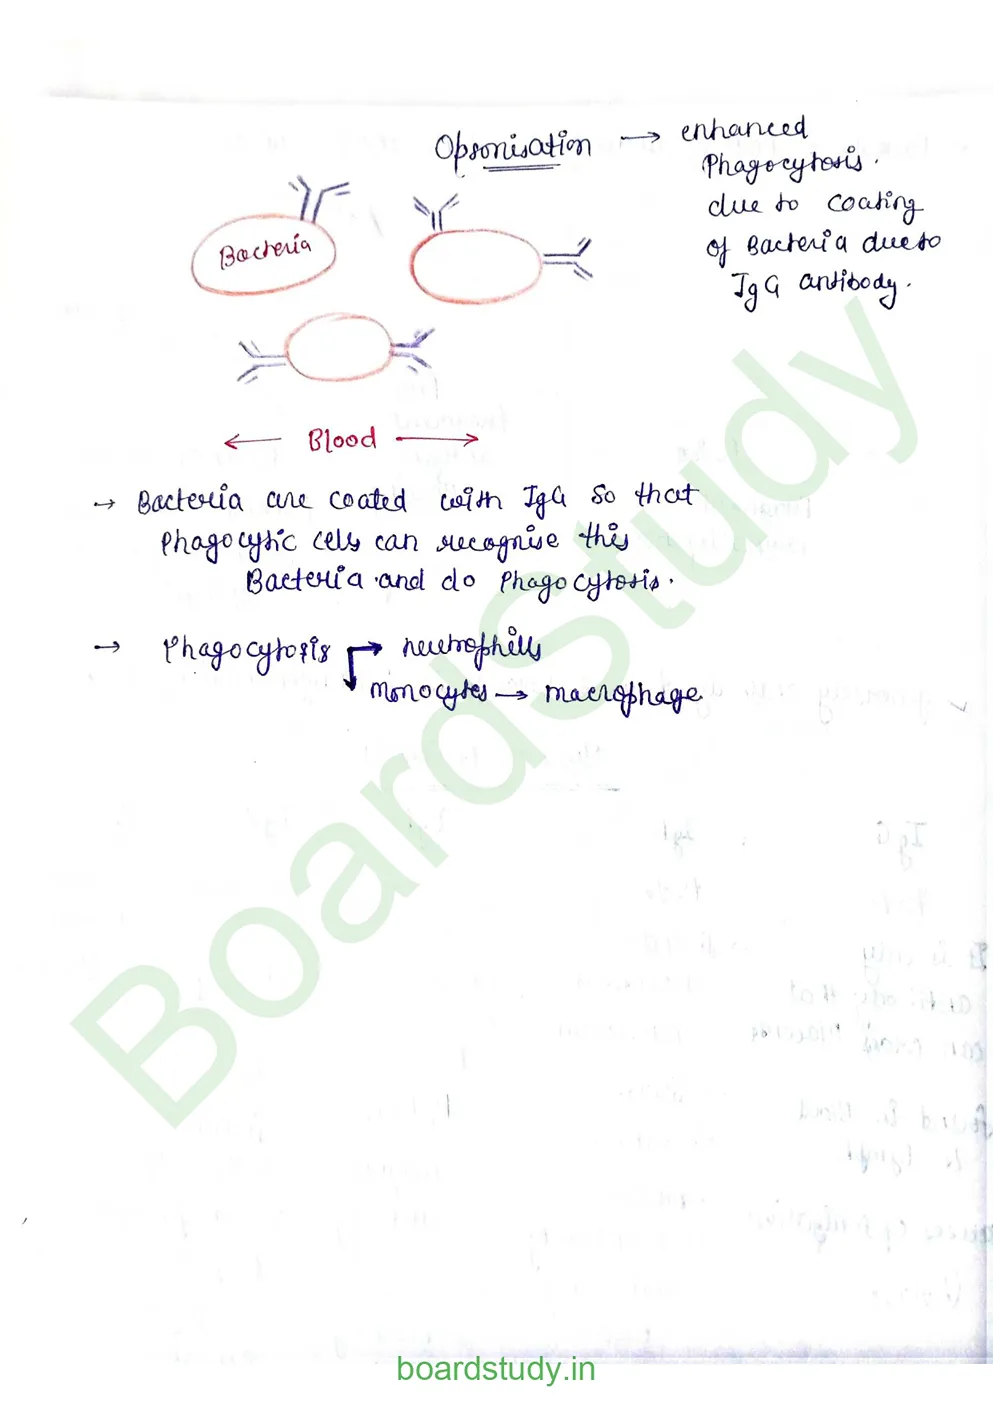 Opsonisation → enhanced
Phagocytosis.
due to coating
of Bacteria due to
IgG antibody.
Bacteria
← Blood →
→ Bacteria are coated with IgG so that
Phagocytic cells can recognise this
Bacteria and do Phagocytosis.
→ Phagocytosis → neutrophills
monocytes → macrophage
BoardStudy
boardstudy.in